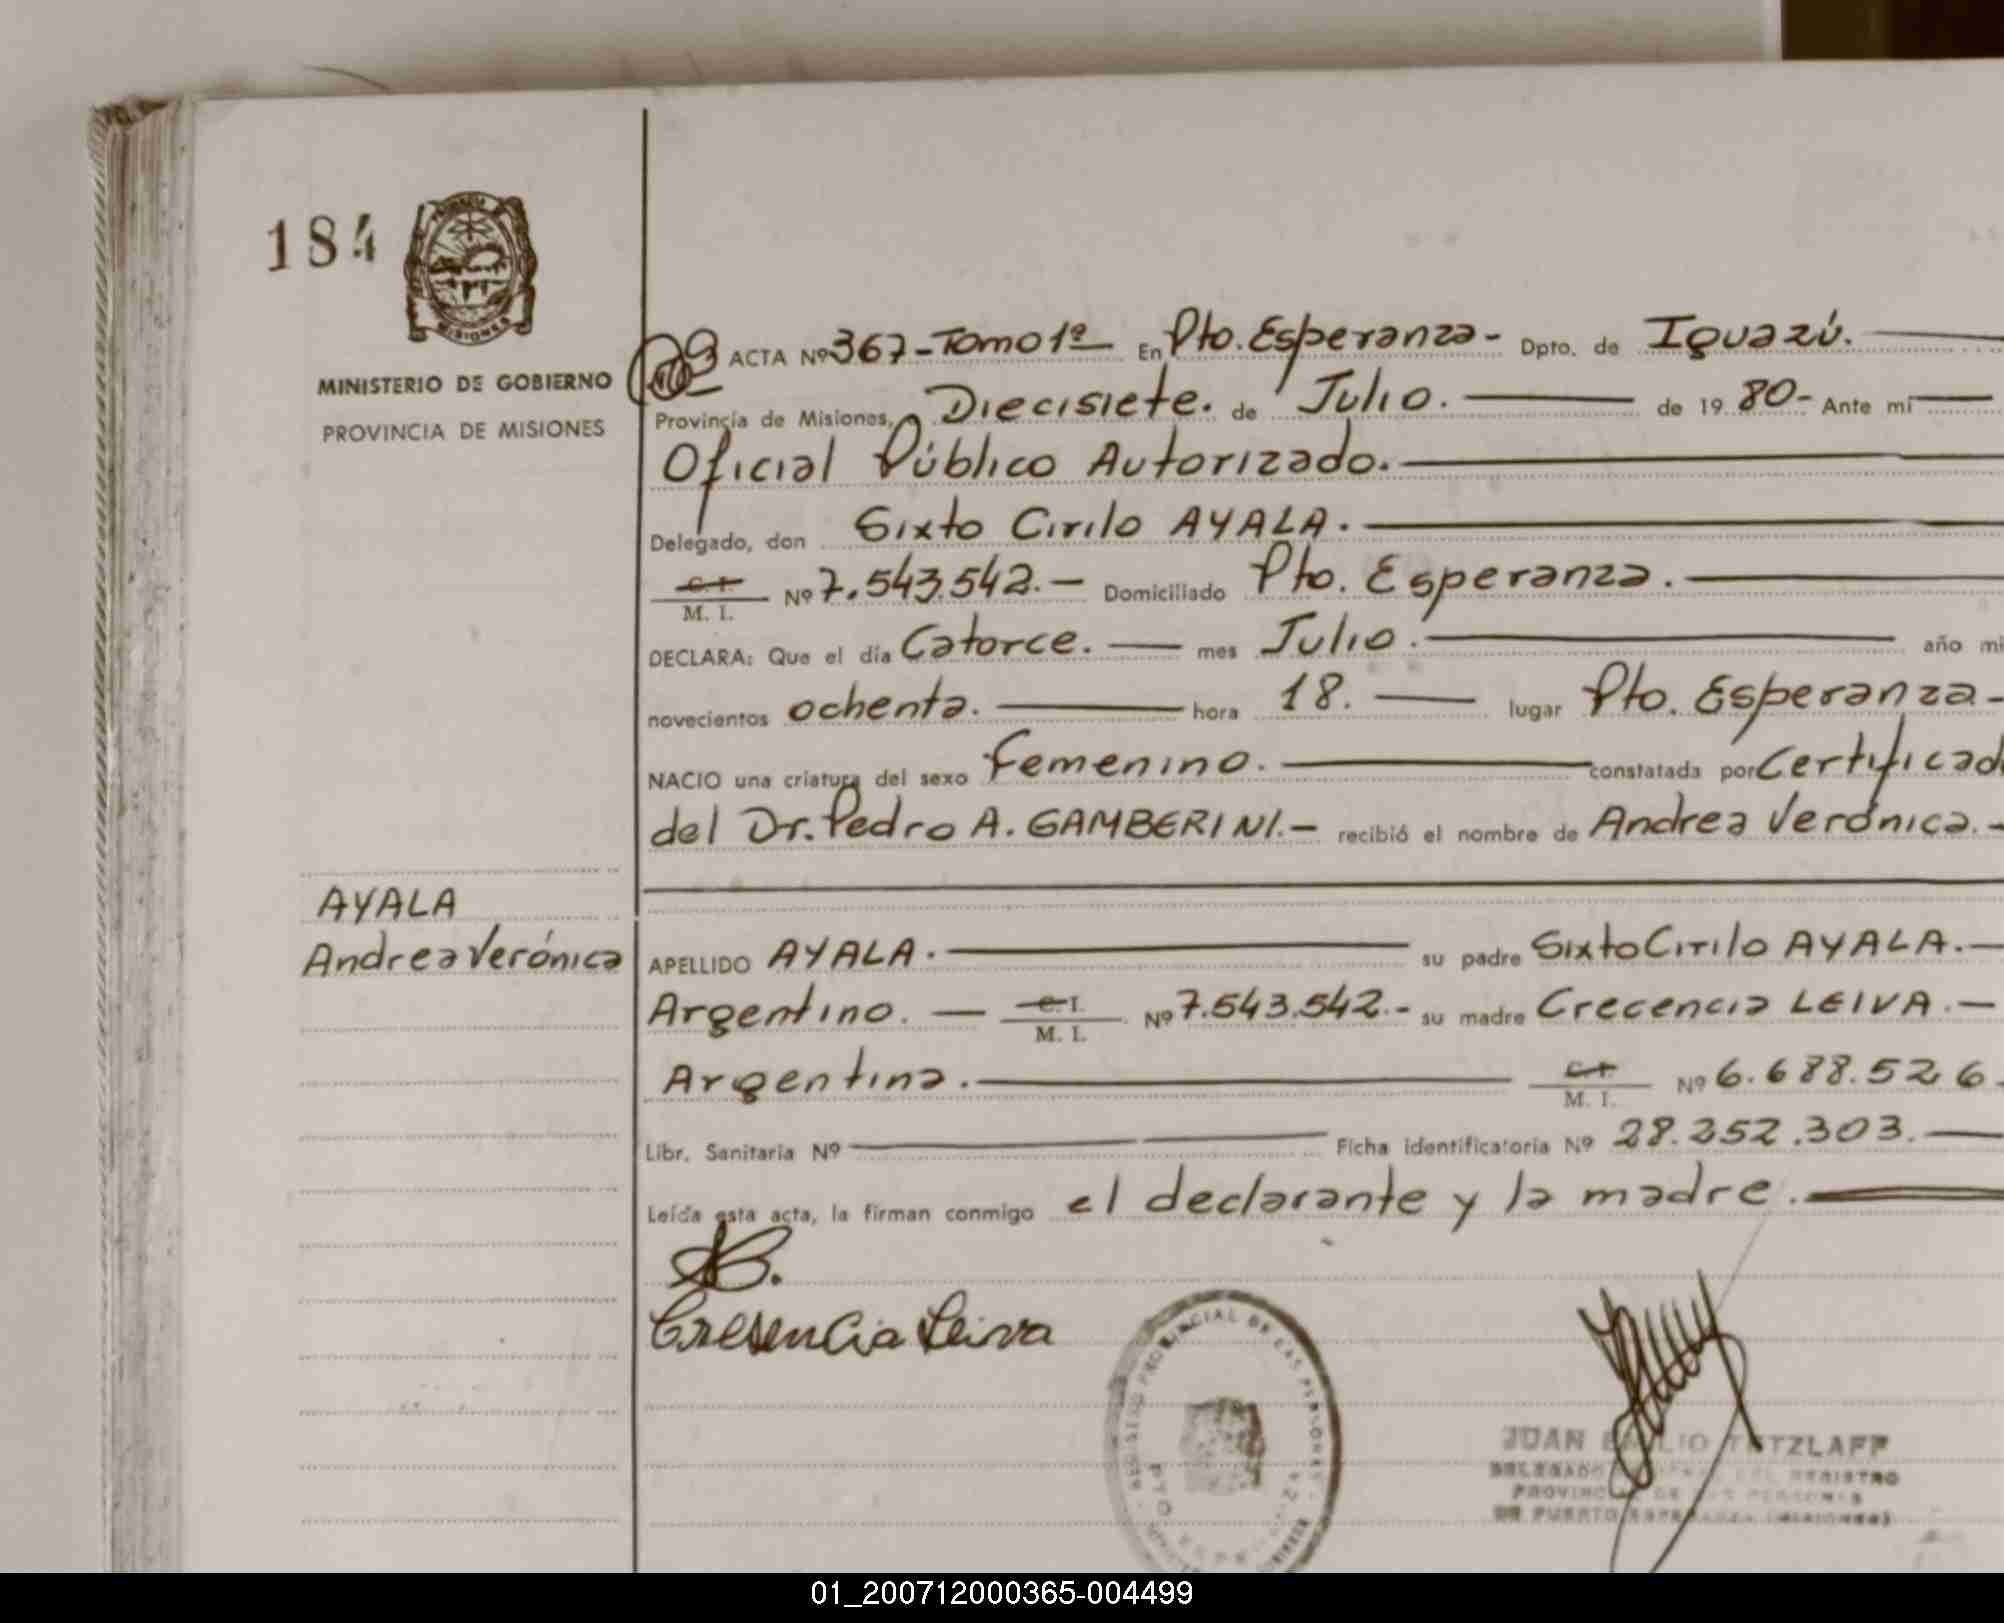 184
MINISTERIO DE GOBIERNO
PROVINCIA DE MISIONES
ACTA Nº 367-Tomo 1º En Pto. Esperanza- Dpto. de Iguazú.
Provincia de Misiones, Diecisiete. de Julio. de 19 80- Ante mí
Oficial Público Autorizado.
Delegado, don Sixto Cirilo AYALA.
C. I.
M. I. Nº 7.543.542.- Domiciliado Pto. Esperanza.
DECLARA: Que el día Catorce. mes Julio. año mi
novecientos ochenta. hora 18. lugar Pto. Esperanza-
NACIO una criatura del sexo Femenino. constatada por Certificad
del Dr. Pedro A. GAMBERINI.- recibió el nombre de Andrea Verónica.-
AYALA
Andrea Verónica
APELLIDO AYALA. su padre Sixto Cirilo AYALA.-
Argentino. C. I.
M. I. Nº 7.543.542.- su madre Crecencia LEIVA.-
Argentina. C. I.
M. I. Nº 6.688.526-
Libr. Sanitaria Nº Ficha identificatoria Nº 28.252.303.
Leída esta acta, la firman conmigo el declarante y la madre.
Cresencia Leiva
REGISTRO PROVINCIAL DE LAS PERSONAS
JUAN EMILIO TETZLAFF
DELEGADO DEL REGISTRO
PROVINCIAL DE LAS PERSONAS
DE PUERTO ESPERANZA (MISIONES)
01_200712000365-004499